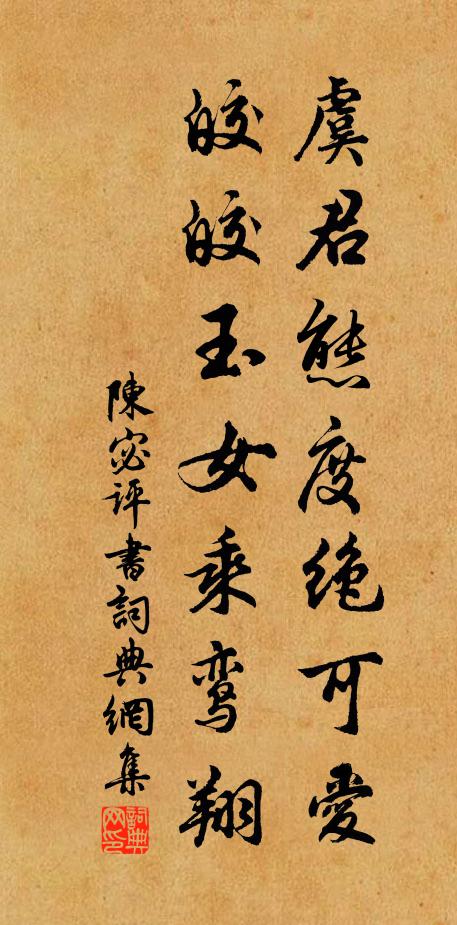 虞君態度绝可愛
皎皎玉女乘鸾翔
陳宓評書詞典網集
詞典网印